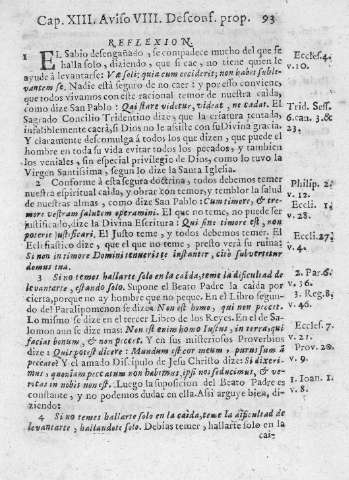 Cap. XIII. Aviso VIII. Desconf. prop. 93
REFLEXION.
1 EL Sabio desengañado, se compadece mucho del que se
halla solo, diziendo, que si cae, no tiene quien le
ayude à levantarse: Væ soli; quia cum ceciderit; non habet suble-
vantem se. Nadie está seguro de no caer: y por esso conviene,
que todos vivamos con este racional temor de nuestra caida,
como dize San Pablo: Qui stare videtur, videat, ne cadat. El
Sagrado Concilio Tridentino dize, que la criatura tentada,
infaliblemente caerá, si Dios no le assiste con su Divina gracia.
Y claramente descomulga à todos los que dizen, que puede el
hombre en toda su vida evitar todos los pecados, y tambien
los veniales, sin especial privilegio de Dios, como lo tuvo la
Virgen Santissima, segun lo dize la Santa Iglesia.
2 Conforme à esta segura doctrina, todos debemos temer
nuestra espiritual caida, y obrar con temor, y temblor la salud
de nuestras almas, como dize San Pablo: Cum timore, & tre-
more vestram salutem operamini. El que no teme, no puede ser
justificado, dize la Divina Escritura: Qui sine timore est, non
poterit justificari. El Justo teme, y todos debemos temer. El
Eclesiastico dize, que el que no teme, presto verá su ruina:
Si non in timore Domini tenueris te instanter, citò subvertetur
domus tua.
3 Si no temes hallarte solo en la caida, teme la dificultad de
levantarte, estando solo. Supone el Beato Padre la caida por
cierta, porque no ay hombre que no peque. En el Libro segun-
do del Paralipomenon se dize: Non est homo, qui non peccet.
Lo mismo se dize en el tercer Libro de los Reyes. En el de Sa-
lomon aun se dize mas: Non est enim homo Iustus, in terra, qui
faciat bonum, & non peccet. Y en sus misteriosos Proverbios
dize: Quis potest dicere: Mundum est cor meum, purus sum à
peccato? Y el amado Discipulo de Jesu Christo dize: Si dixeri-
mus, quoniam peccatum non habemus, ipsi nos seducimus, & ve-
ritas in nobis non est. Luego la suposicion del Beato Padre es
constante, y no podemos dudar en ella. Assi arguye bien, di-
ziendo:
4 Si no temes hallarte solo en la caida, teme la dificultad de
levantarte, hallandote solo. Debias temer, hallarte solo en la
cai-
Eccles. 4.
v. 10.
Trid. Sess.
6. can. 3. &
23.
Philip. 2.
v. 12.
Eccli. 1.
v. 28.
Eccli. 27.
v. 4.
2. Par. 6.
v. 36.
3. Reg. 8.
v. 46.
Eccles. 7.
v. 21.
Prov. 20.
v. 9.
1. Ioan. 1.
v. 8.